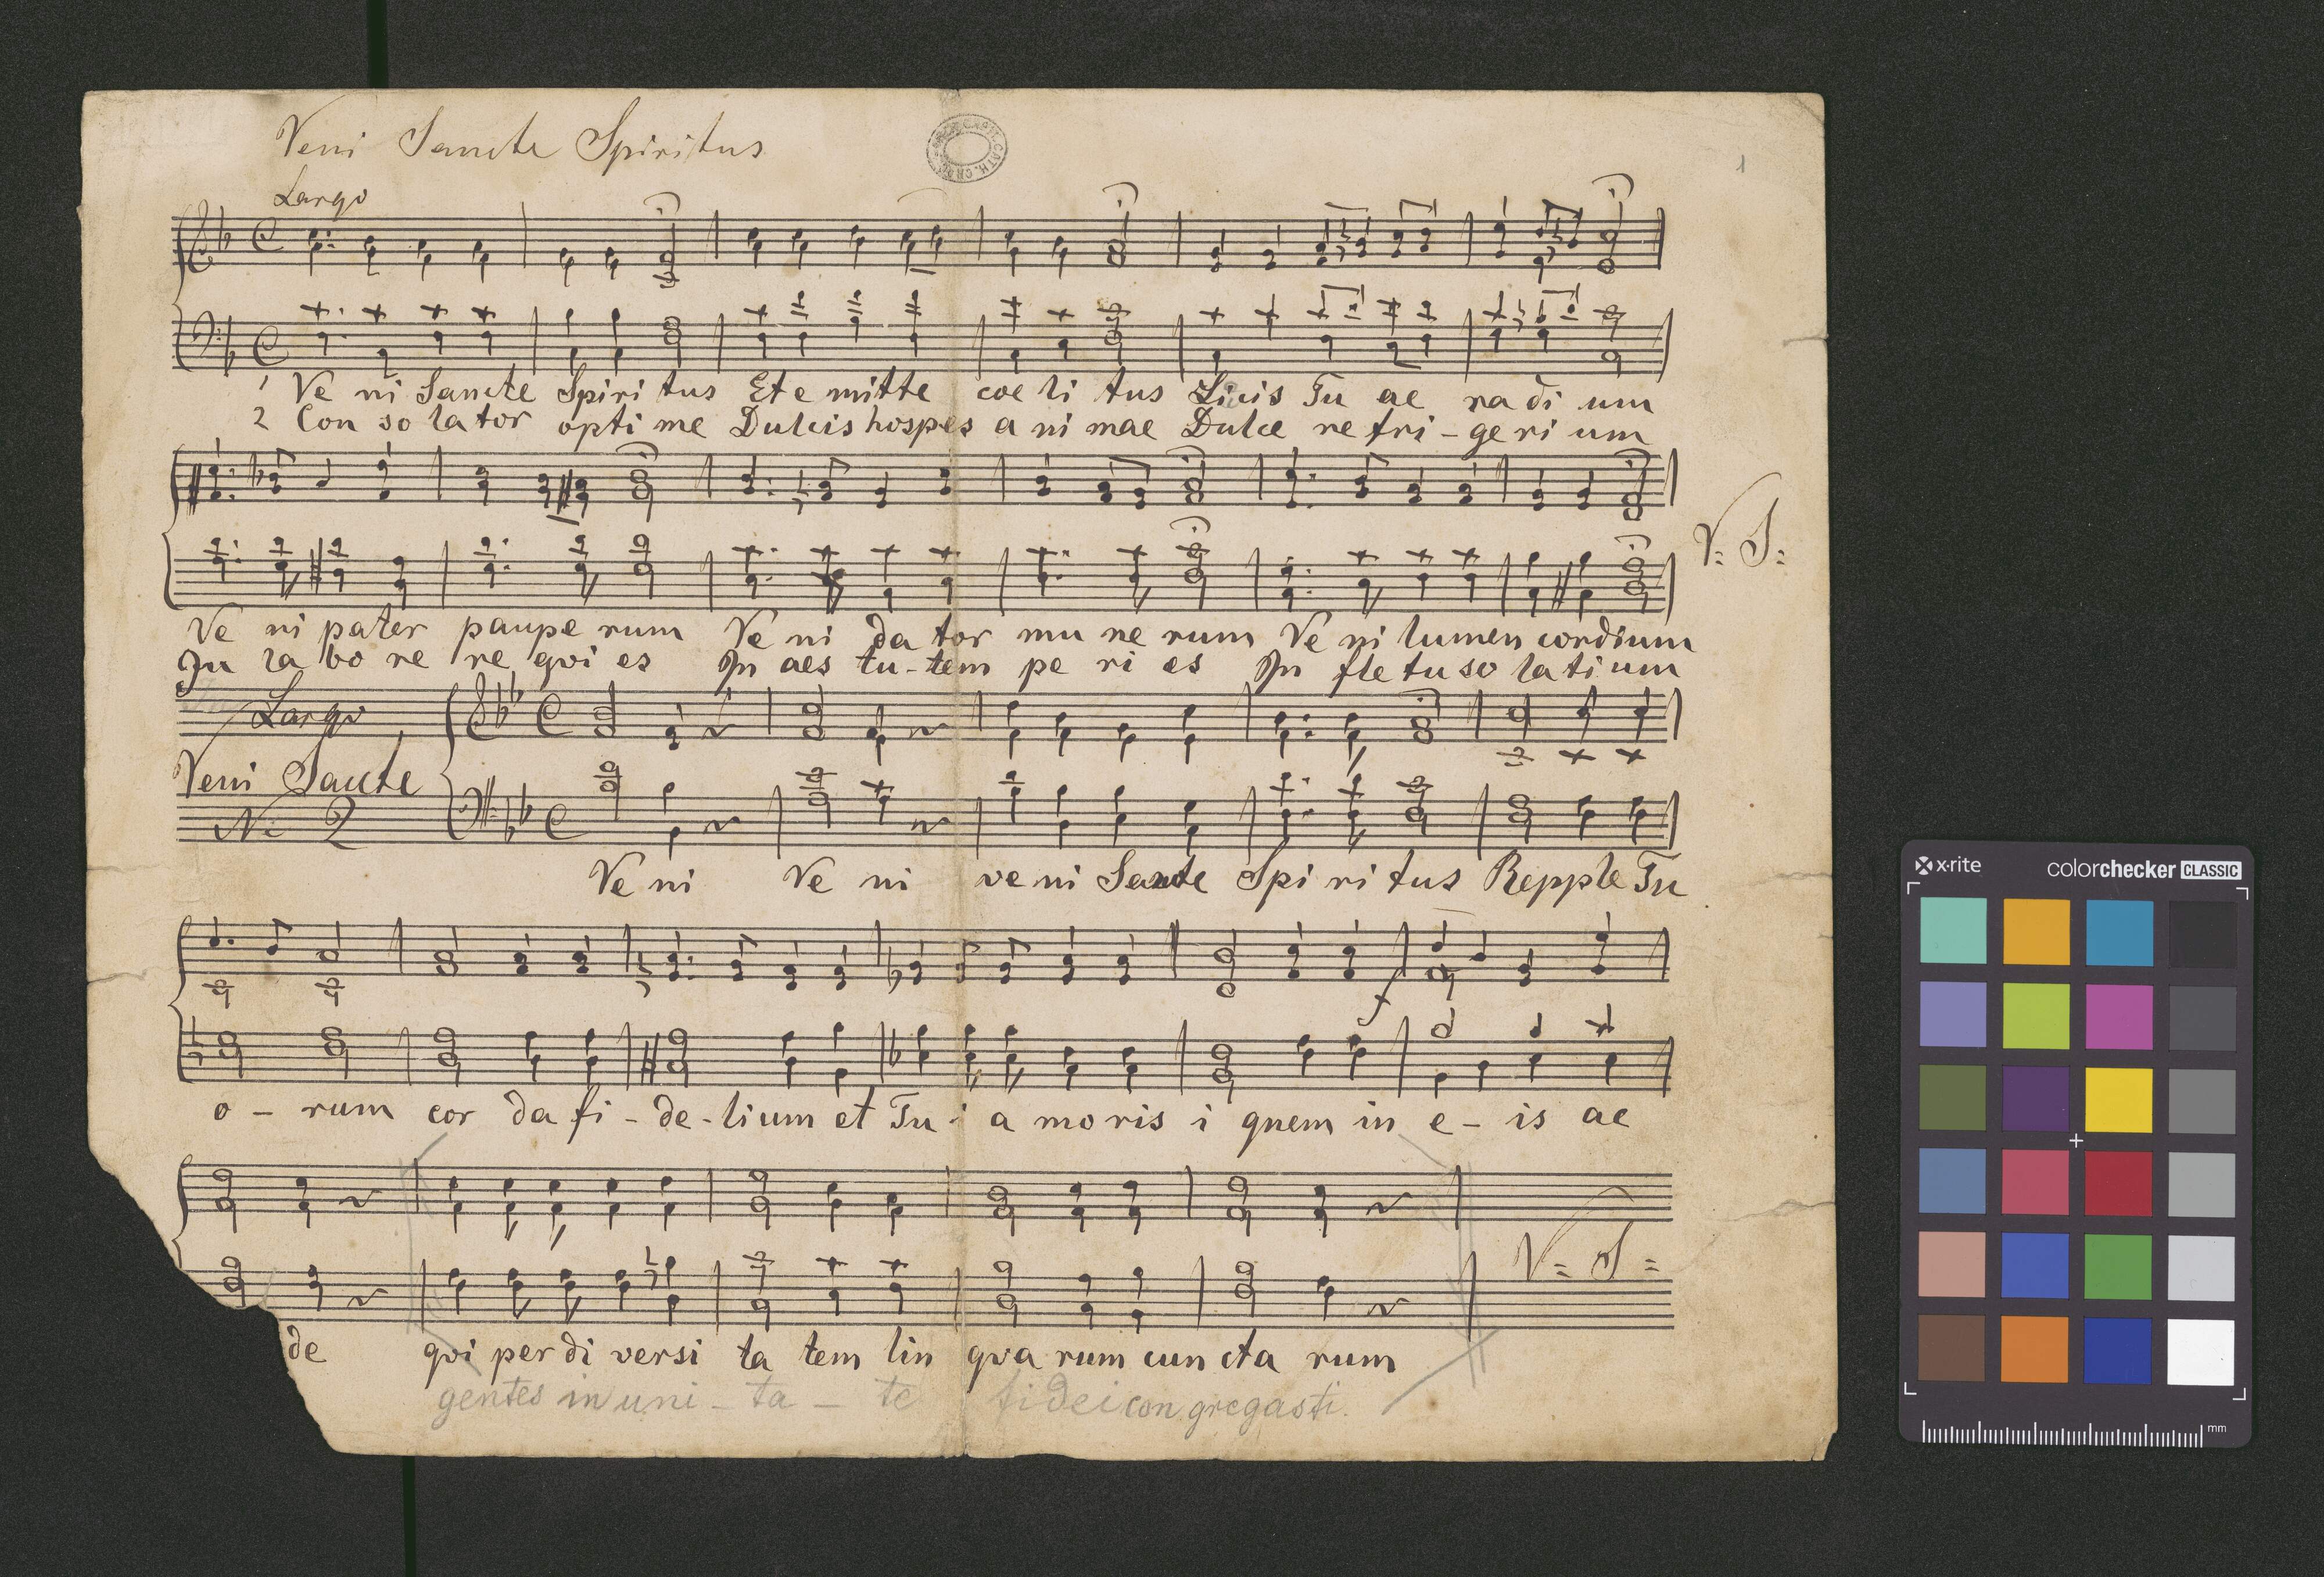 Veni Sancte Spiritus
1
Largo
1 Ve ni Sancte Spiri tus Et e mitte coe li tus Tu ae ra di um
2 Con so lator opti me Dulcis hospes a ni mae Dulce re fri - ge ri um
V: S:
Ve ni pater paupe rum Ve ni da tor mu ne rum Ve ni lumen cordium
In la bo re re qvi es In aes tu - tem pe ri es In fle tu so la ti um
Largo
Veni Sancte
No 2
Ve ni Ve ni ve ni Sancte Spi ri tus Repple Tu
f
o - rum cor da fi - de - lium et Tu i a mo ris i gnem in e - is ac
V= S=
de qvi per di versi ta tem lin qva rum cun cta rum
gentes in uni - ta - te fidei con gregasti.
x-rite colorchecker CLASSIC
mm